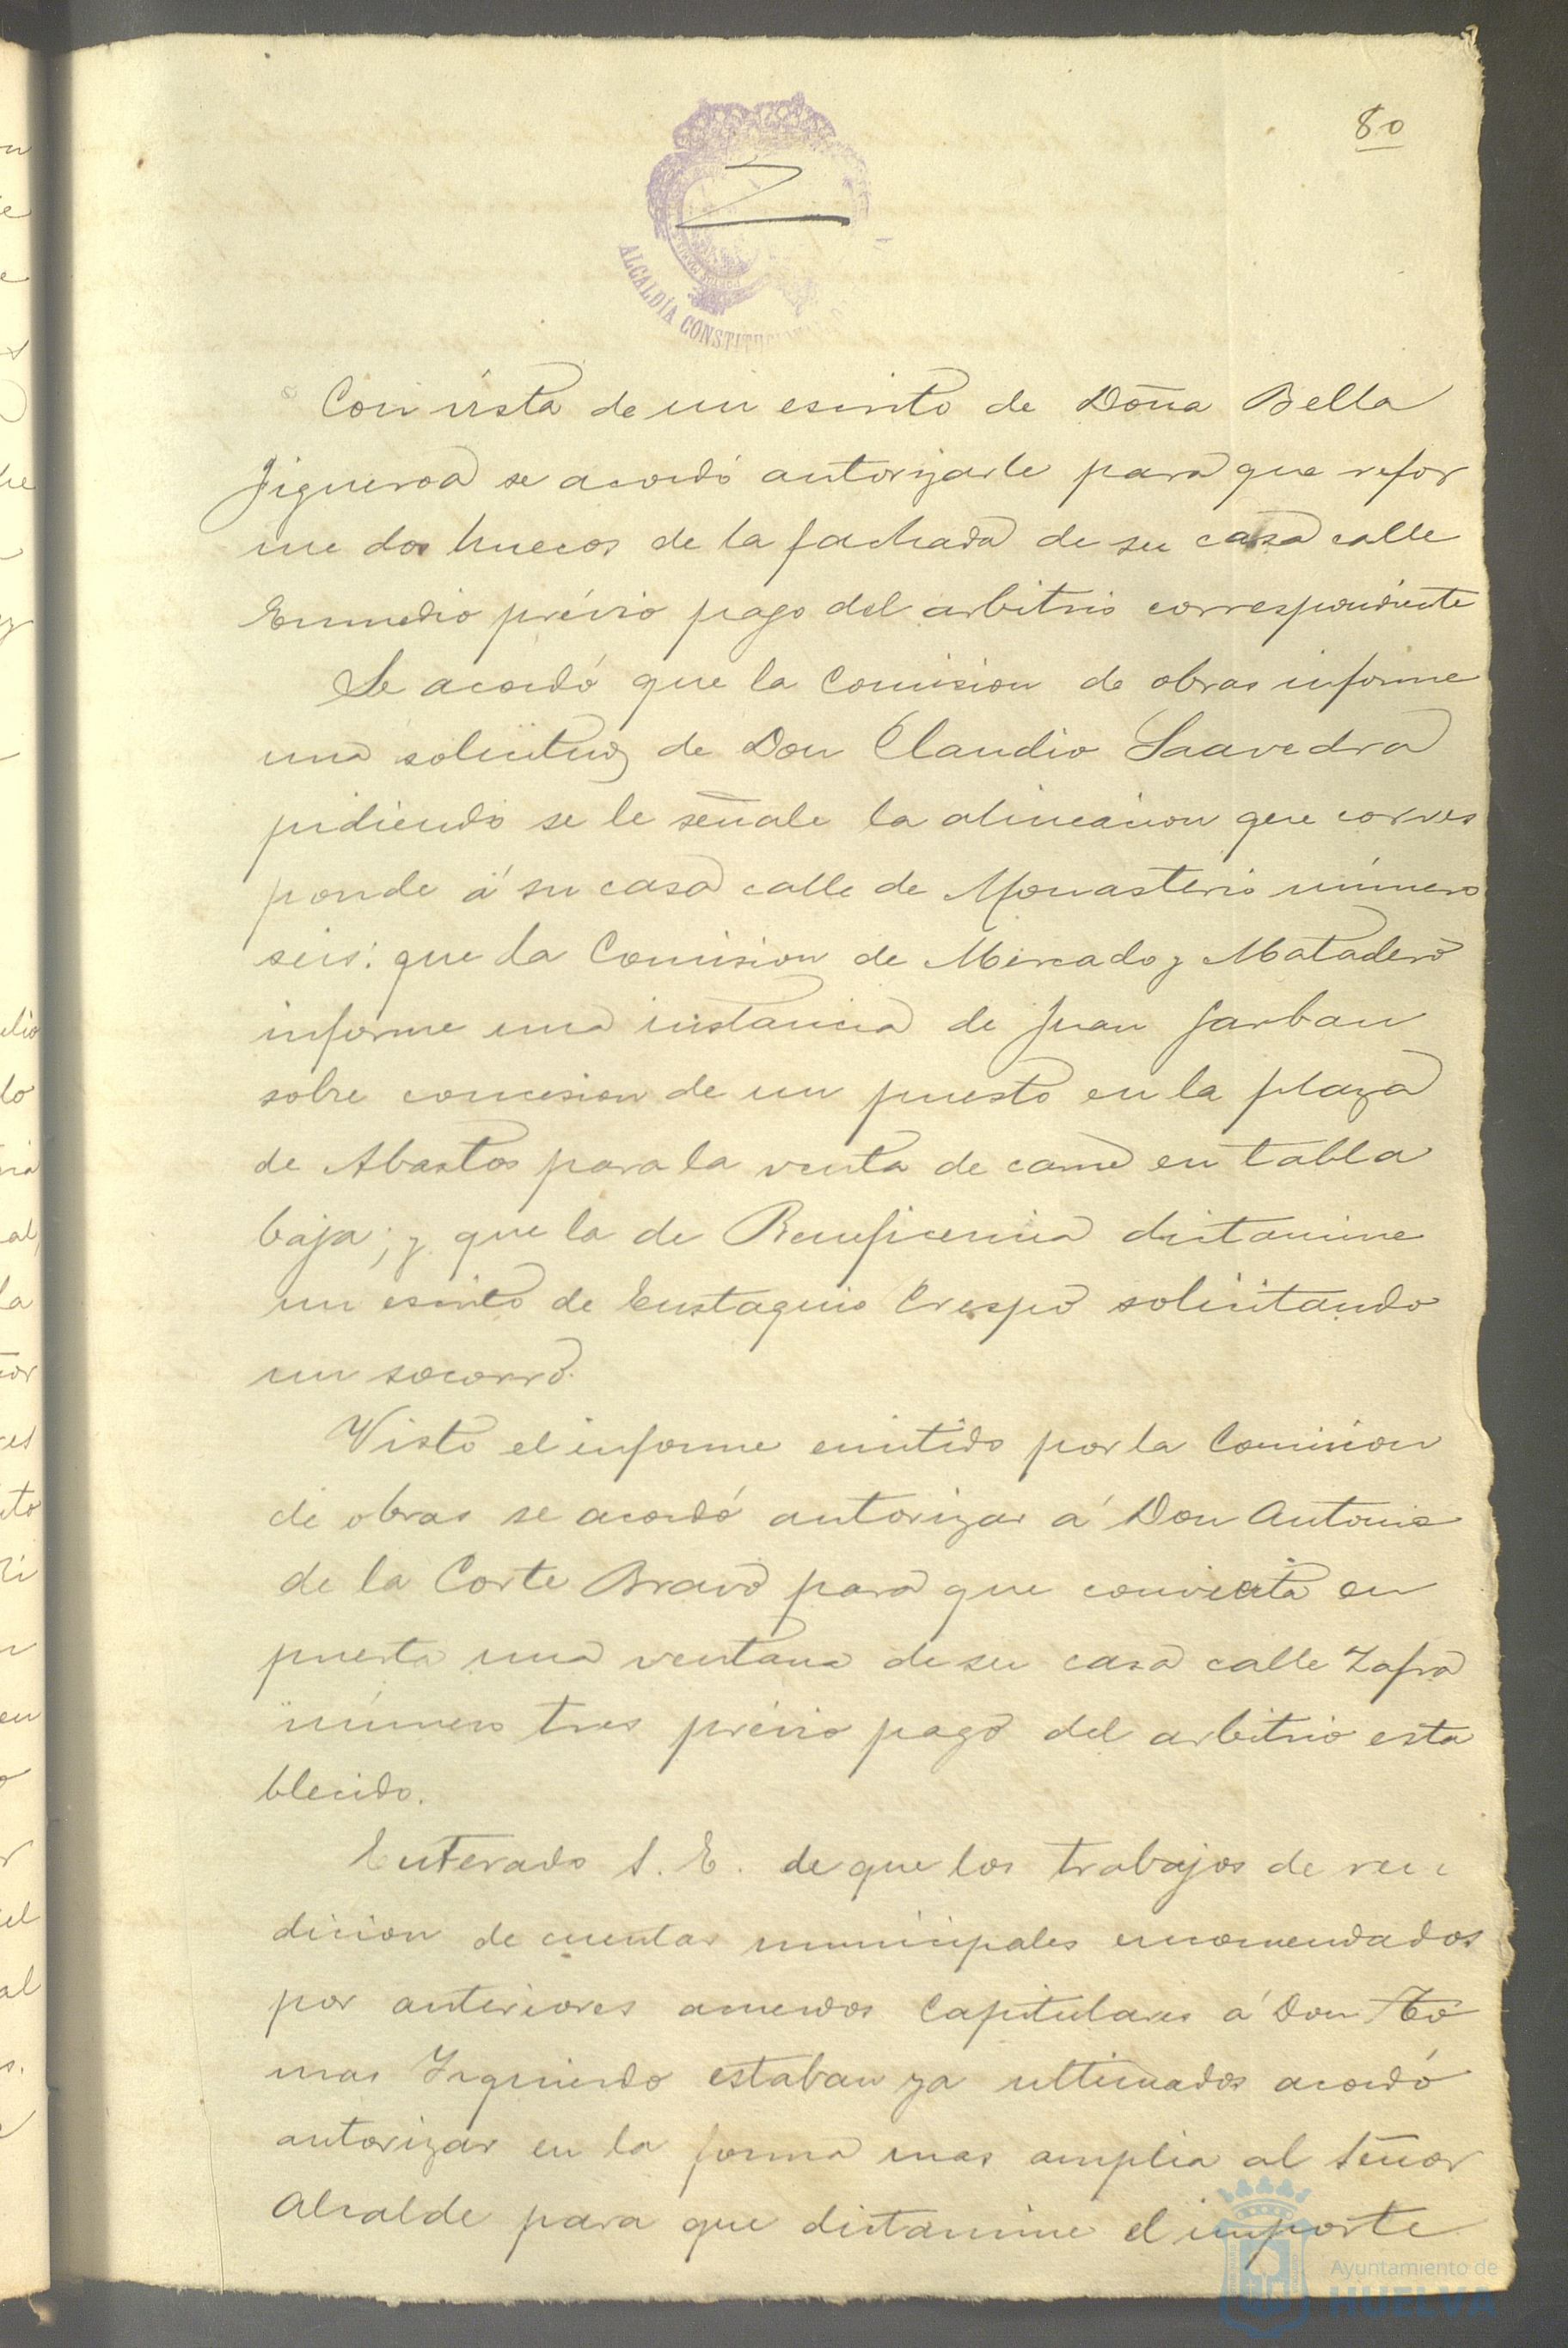 80
ALCALDÍA CONSTITUCIONAL
Con vista de un escrito de Doña Bella
Figueroa se acordó autorizarle para que refor
me dos huecos de la fachada de su casa calle
Enmedio prévio pago del arbitrio correspondiente
Se acordó que la Comision de obras informe
una solicitud de Don Claudio Saavedra
pidiendo se le señale la alineacion que corres
ponde á su casa calle de Monasterio número
seis: que la Comision de Mercado y Matadero
informe una instancia de Juan Garban
sobre concesion de un puesto en la plaza
de Abastos para la venta de carne en tabla
baja; y que la de Beneficencia dictamine
un escrito de Eustaquio Crespo solicitando
un socorro.
Visto el informe emitido por la Comision
de obras se acordó autorizar á Don Antonio
de la Corte Bravo para que convierta en
puerta una ventana de su casa calle Zafra
número tres prévio pago del arbitrio esta
blecido.
Enterado S. E. de que los trabajos de ren
dicion de cuentas municipales encomendados
por anteriores acuerdos Capitulares á Don To
mas Izquierdo estaban ya ultimados acordó
autorizar en la forma mas amplia al Señor
Alcalde para que dictamine el importe
Ayuntamiento de
HUELVA